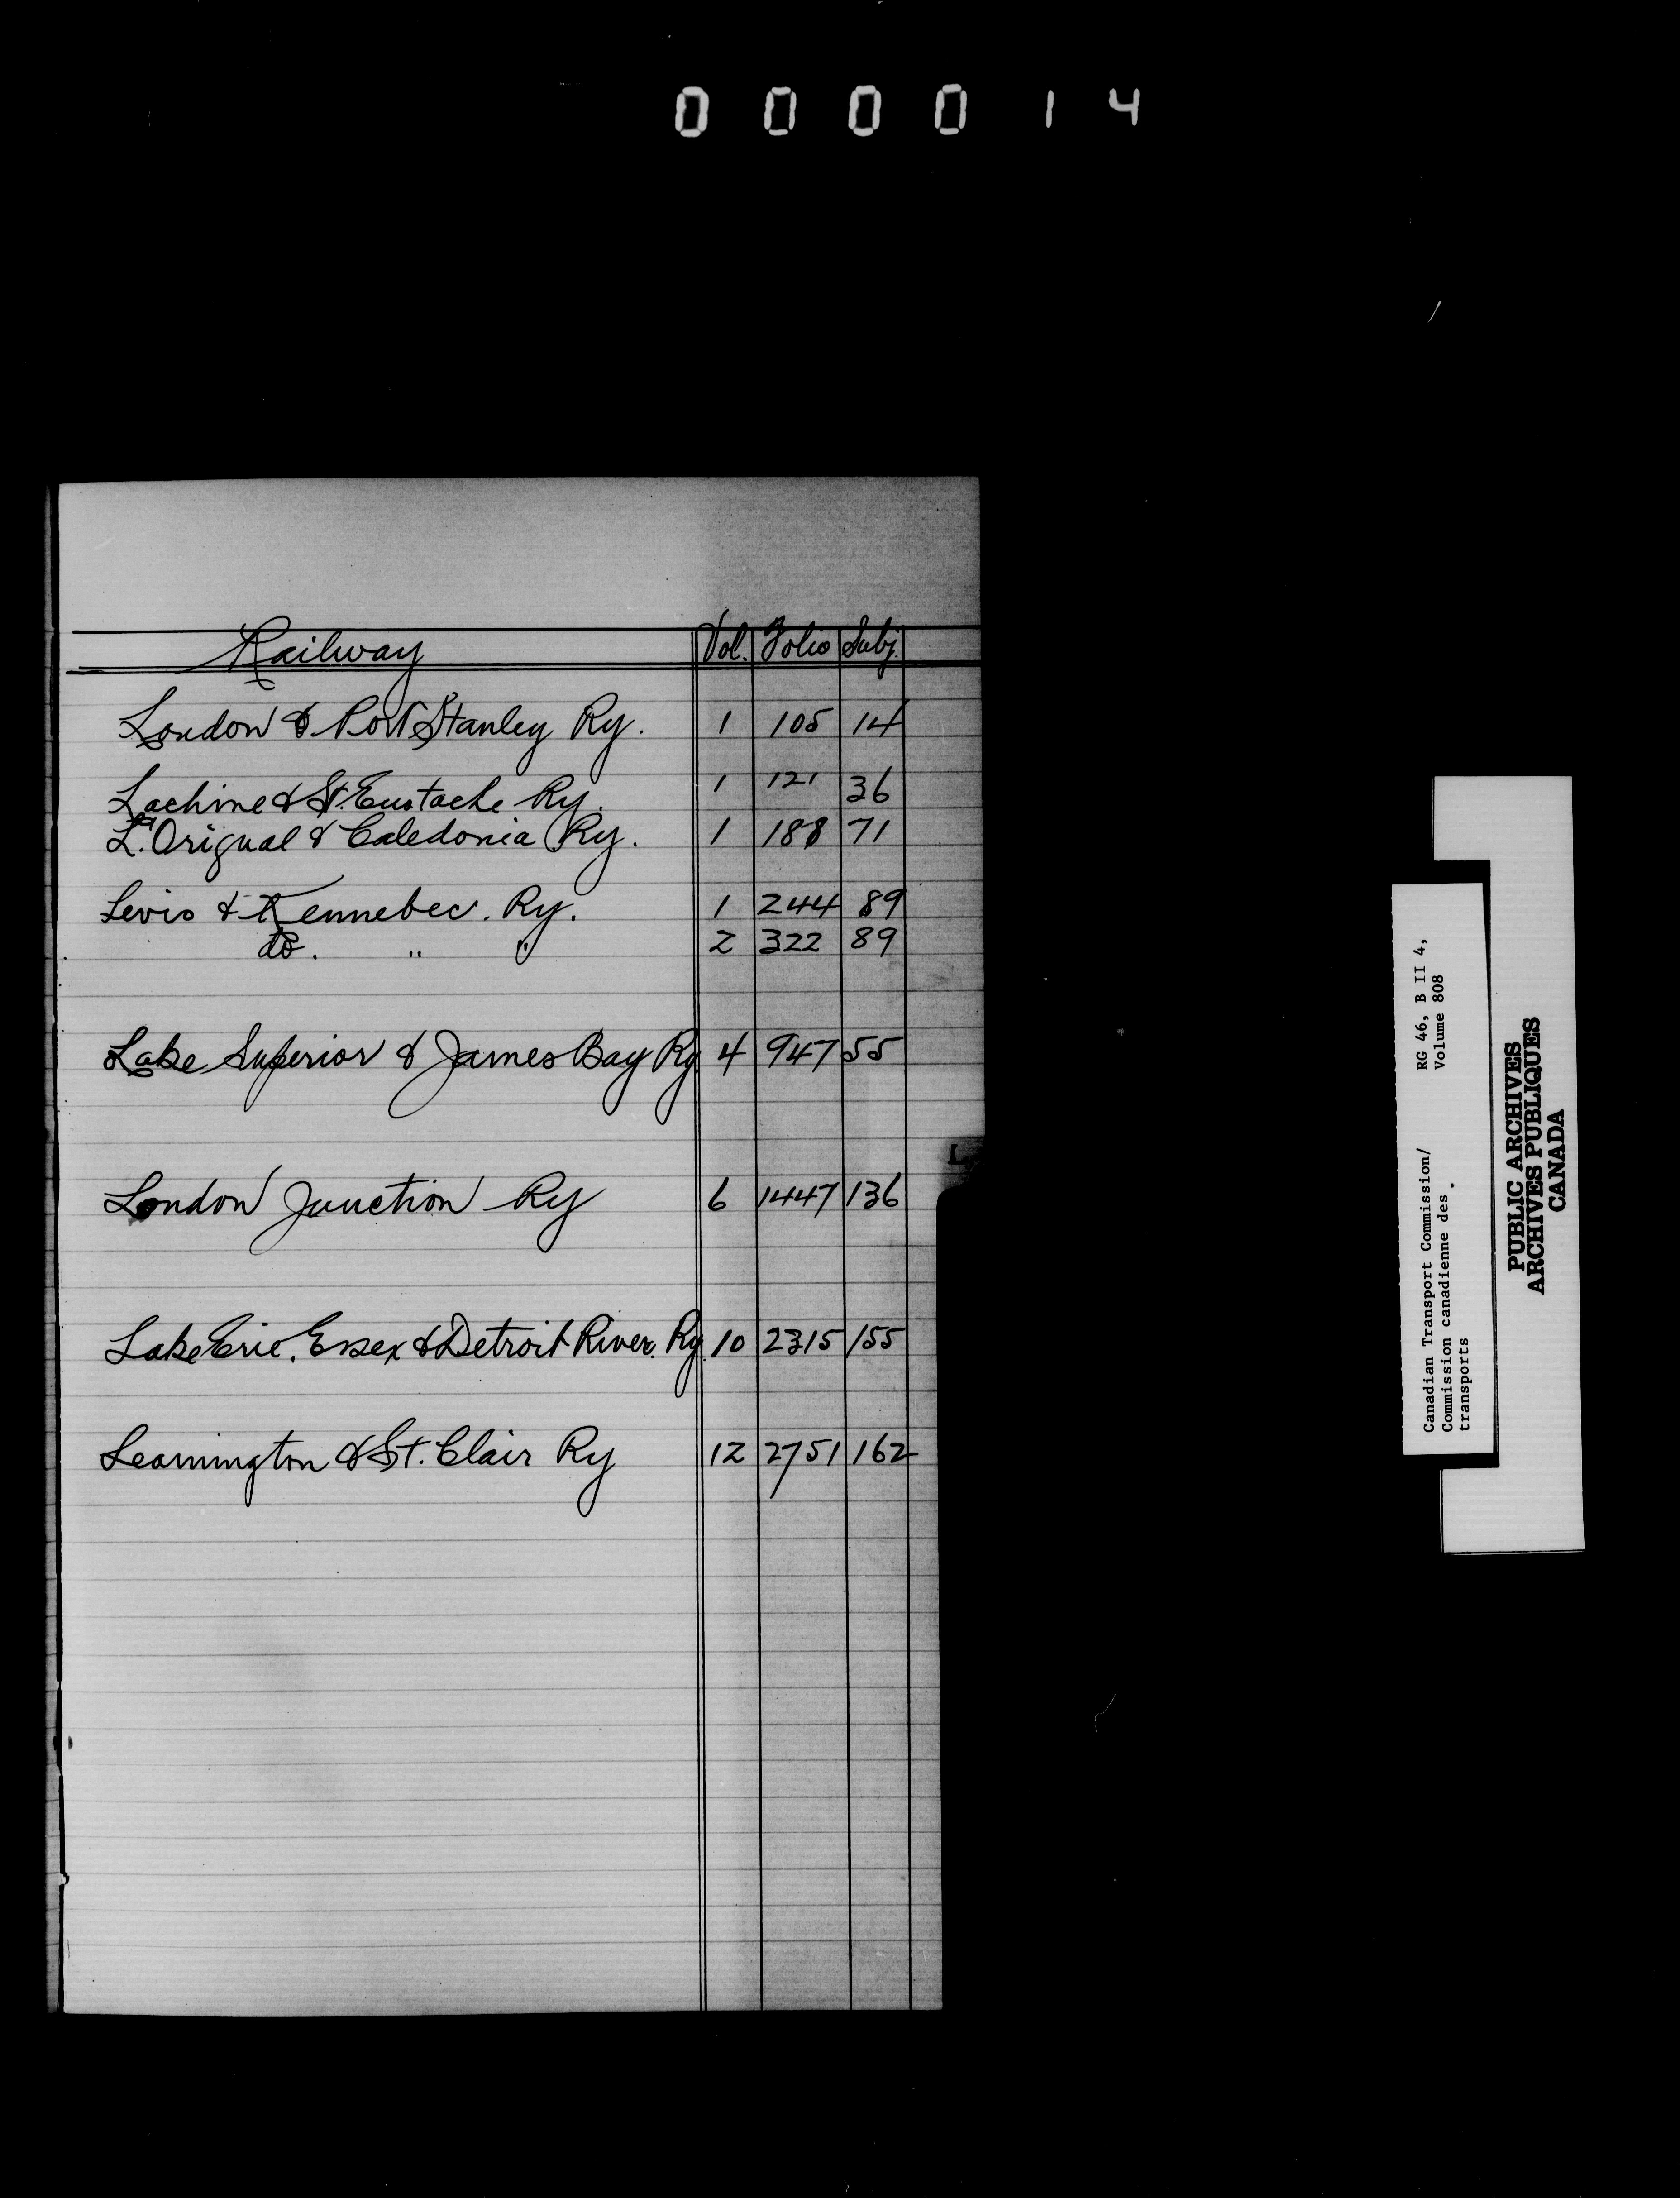 0 0 0 0 1 4
Railway Vol. Folio Subj.
London & Port Stanley Ry. 1 105 14
Lachine & St. Eustache Ry. 1 121 36
L'Orignal & Caledonia Ry. 1 188 71
Levis & Kennebec. Ry. 1 244 89
do. " " 2 322 89
Lake Superior & James Bay Ry. 4 947 55
L
London Junction Ry 6 1447 136
Lake Erie, Essex & Detroit River Ry. 10 2315 155
Leamington & St. Clair Ry 12 2751 162
Canadian Transport Commission/ RG 46, B II 4,
Commission canadienne des Volume 808
transports
PUBLIC ARCHIVES
ARCHIVES PUBLIQUES
CANADA